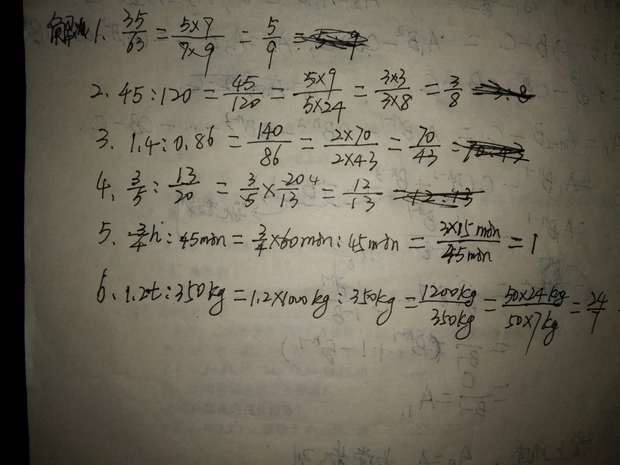 解: 1. 35/63 = 5×7/7×9 = 5/9
2. 45:120 = 45/120 = 5×9/5×24 = 3×3/3×8 = 3/8
3. 1.4:0.86 = 140/86 = 2×70/2×43 = 70/43
4. 3/5 : 13/20 = 3/5 × 20 4/13 = 12/13
5. 3/4h : 45min = 3/4×60min : 45min = 3×15min/45min = 1
6. 1.2t : 350kg = 1.2×1000kg : 350kg = 1200kg/350kg = 50×24kg/50×7kg = 24/7